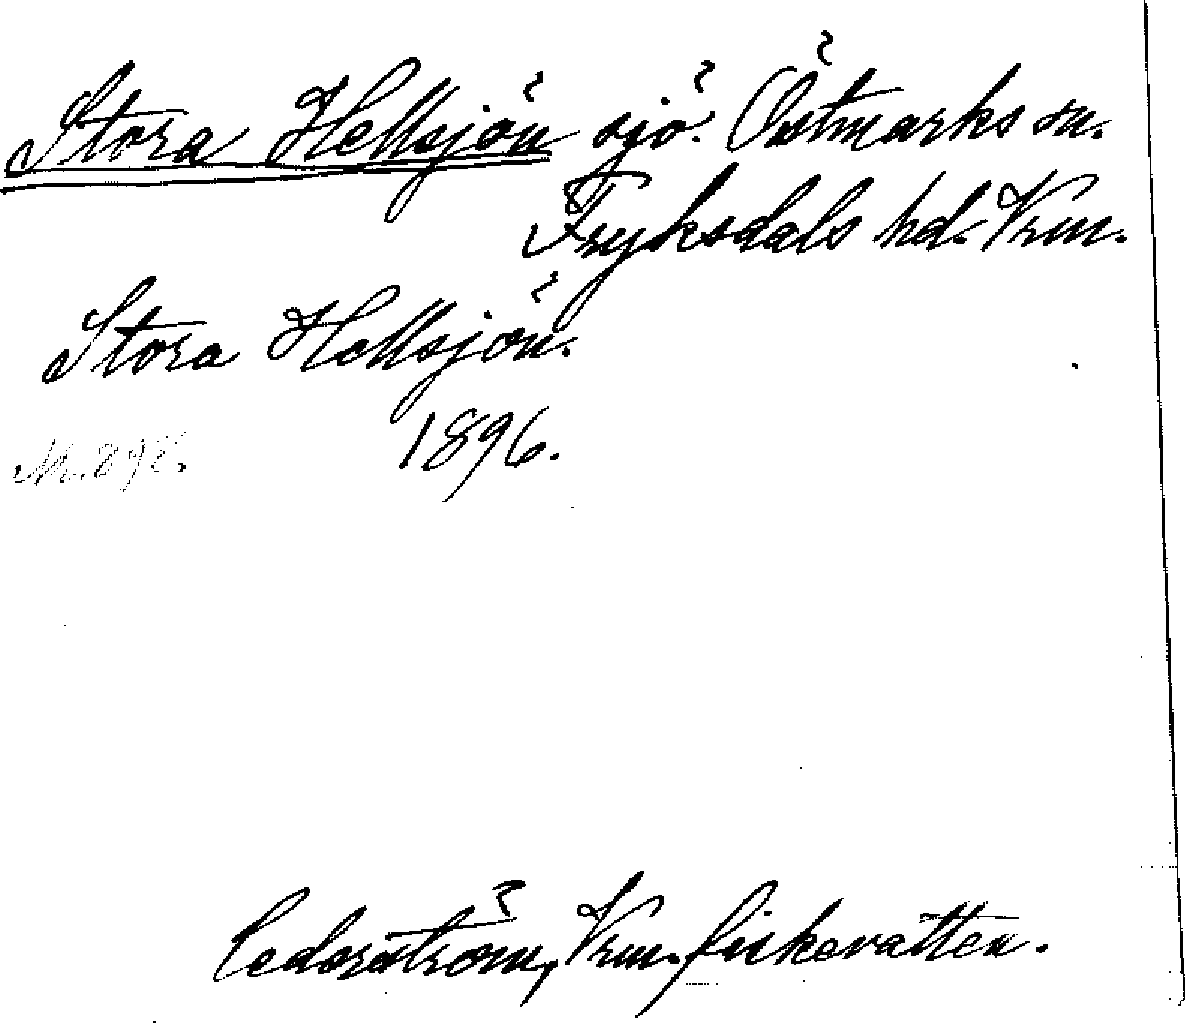 Stora Hellsjön sjö. Östmarks sn.
Fryksdals hd. Vrm.
Stora Hellsjön.
1896.
Cederström, Vrm. fiskevatten.